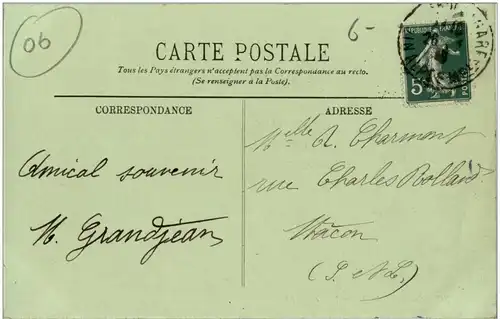 06
6-
CARTE POSTALE
Tous les Pays étrangers n'acceptent pas la Correspondance au recto.
(Se renseigner à la Poste).
CORRESPONDANCE
ADRESSE
REPUBLIQUE FRANÇAISE
5
POSTES
Amical souvenir
M. Grandjean
Melle A. Charmont
rue Charles Rolland
Mâcon
(S. & L.)